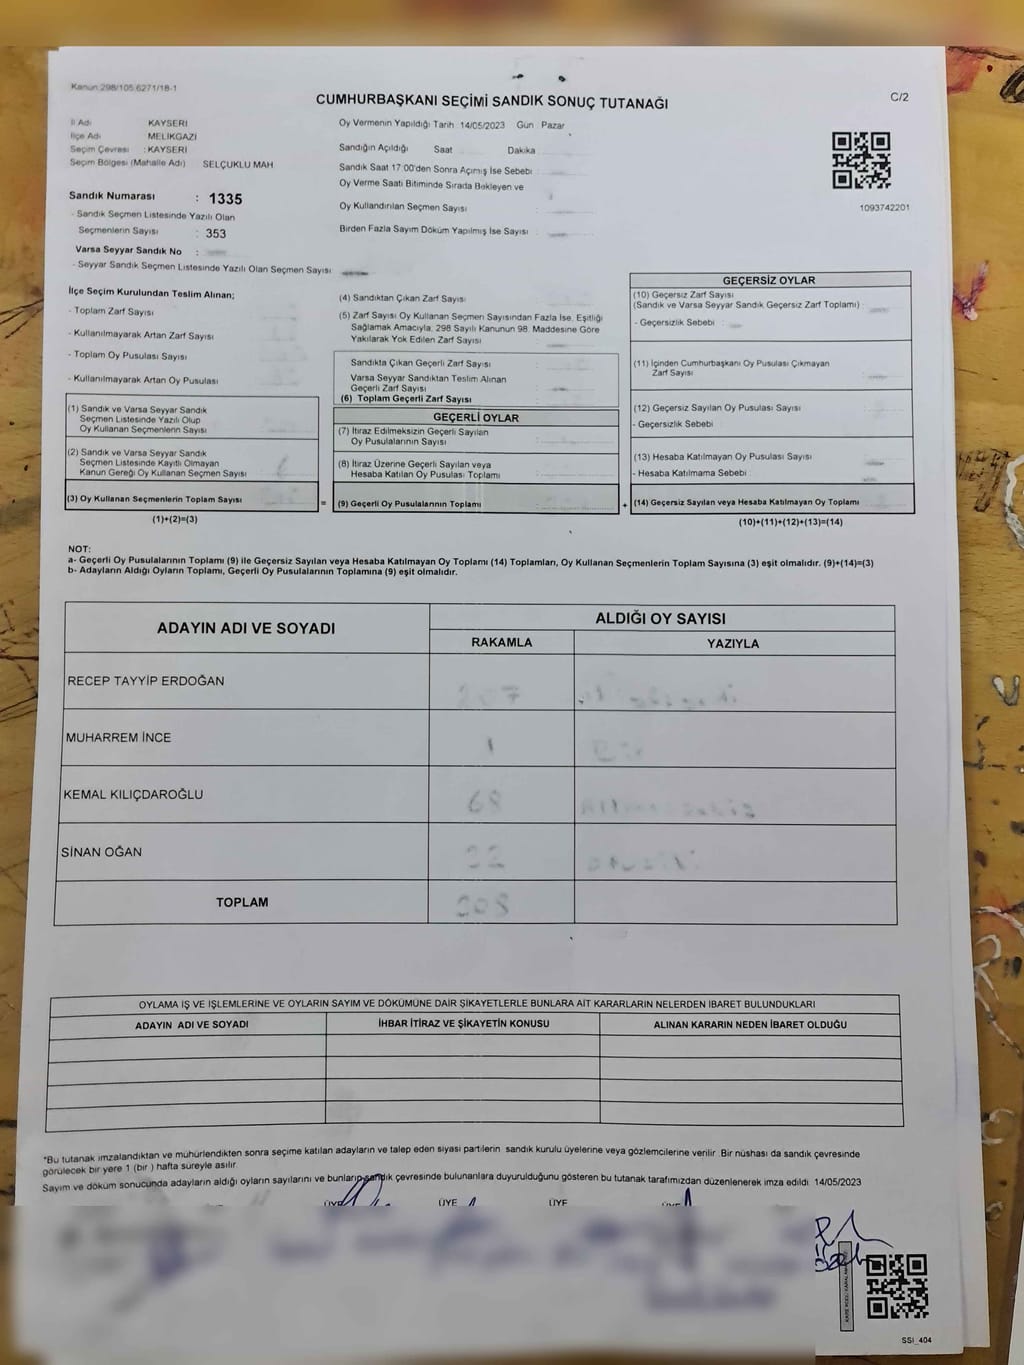 Kanun 298/105 6271/18-1
CUMHURBAŞKANI SEÇİMİ SANDIK SONUÇ TUTANAĞI
C/2
İl Adı KAYSERİ
İlçe Adı MELİKGAZİ
Seçim Çevresi : KAYSERİ
Seçim Bölgesi (Mahalle Adı) SELÇUKLU MAH.
Sandık Numarası : 1335
- Sandık Seçmen Listesinde Yazılı Olan
Seçmenlerin Sayısı : 353
Varsa Seyyar Sandık No :
- Seyyar Sandık Seçmen Listesinde Yazılı Olan Seçmen Sayısı
Oy Vermenin Yapıldığı Tarih 14/05/2023 Gün Pazar
Sandığın Açıldığı Saat Dakika
Sandık Saat 17:00'den Sonra Açımış İse Sebebi :
Oy Verme Saati Bitiminde Sırada Bekleyen ve
Oy Kullandırılan Seçmen Sayısı :
Birden Fazla Sayım Döküm Yapılmış İse Sayısı :
1093742201
İlçe Seçim Kurulundan Teslim Alınan;
- Toplam Zarf Sayısı
- Kullanılmayarak Artan Zarf Sayısı
- Toplam Oy Pusulası Sayısı
- Kullanılmayarak Artan Oy Pusulası
(1) Sandık ve Varsa Seyyar Sandık
Seçmen Listesinde Yazılı Olup
Oy Kullanan Seçmenlerin Sayısı
(2) Sandık ve Varsa Seyyar Sandık
Seçmen Listesinde Kayıtlı Olmayan
Kanun Gereği Oy Kullanan Seçmen Sayısı
(3) Oy Kullanan Seçmenlerin Toplam Sayısı =
(1)+(2)=(3)
(4) Sandıktan Çıkan Zarf Sayısı
(5) Zarf Sayısı Oy Kullanan Seçmen Sayısından Fazla İse, Eşitliği
Sağlamak Amacıyla, 298 Sayılı Kanunun 98. Maddesine Göre
Yakılarak Yok Edilen Zarf Sayısı
Sandıkta Çıkan Geçerli Zarf Sayısı
Varsa Seyyar Sandıktan Teslim Alınan
Geçerli Zarf Sayısı
(6) Toplam Geçerli Zarf Sayısı
GEÇERLİ OYLAR
(7) İtiraz Edilmeksizin Geçerli Sayılan
Oy Pusulalarının Sayısı
(8) İtiraz Üzerine Geçerli Sayılan veya
Hesaba Katılan Oy Pusulası Toplamı
(9) Geçerli Oy Pusulalarının Toplamı +
GEÇERSİZ OYLAR
(10) Geçersiz Zarf Sayısı
(Sandık ve Varsa Seyyar Sandık Geçersiz Zarf Toplamı) :
- Geçersizlik Sebebi :
(11) İçinden Cumhurbaşkanı Oy Pusulası Çıkmayan
Zarf Sayısı
(12) Geçersiz Sayılan Oy Pusulası Sayısı
- Geçersizlik Sebebi
(13) Hesaba Katılmayan Oy Pusulası Sayısı
- Hesaba Katılmama Sebebi :
(14) Geçersiz Sayılan veya Hesaba Katılmayan Oy Toplamı
(10)+(11)+(12)+(13)=(14)
NOT:
a- Geçerli Oy Pusulalarının Toplamı (9) ile Geçersiz Sayılan veya Hesaba Katılmayan Oy Toplamı (14) Toplamları, Oy Kullanan Seçmenlerin Toplam Sayısına (3) eşit olmalıdır. (9)+(14)=(3)
b- Adayların Aldığı Oyların Toplamı, Geçerli Oy Pusulalarının Toplamına (9) eşit olmalıdır.
ADAYIN ADI VE SOYADI
ALDIĞI OY SAYISI
RAKAMLA YAZIYLA
RECEP TAYYİP ERDOĞAN 207
MUHARREM İNCE 1
KEMAL KILIÇDAROĞLU 68
SİNAN OĞAN
TOPLAM
OYLAMA İŞ VE İŞLEMLERİNE VE OYLARIN SAYIM VE DÖKÜMÜNE DAİR ŞİKAYETLERLE BUNLARA AİT KARARLARIN NELERDEN İBARET BULUNDUKLARI
ADAYIN ADI VE SOYADI İHBAR İTİRAZ VE ŞİKAYETİN KONUSU ALINAN KARARIN NEDEN İBARET OLDUĞU
*Bu tutanak imzalandıktan ve mühürlendikten sonra seçime katılan adayların ve talep eden siyasi partilerin sandık kurulu üyelerine veya gözlemcilerine verilir. Bir nüshası da sandık çevresinde
görülecek bir yere 1 (bir) hafta süreyle asılır.
Sayım ve döküm sonucunda adayların aldığı oyların sayılarını ve bunların sandık çevresinde bulunanlara duyurulduğunu gösteren bu tutanak tarafımızdan düzenlenerek imza edildi. 14/05/2023
ÜYE ÜYE ÜYE ÜYE
SSİ_404